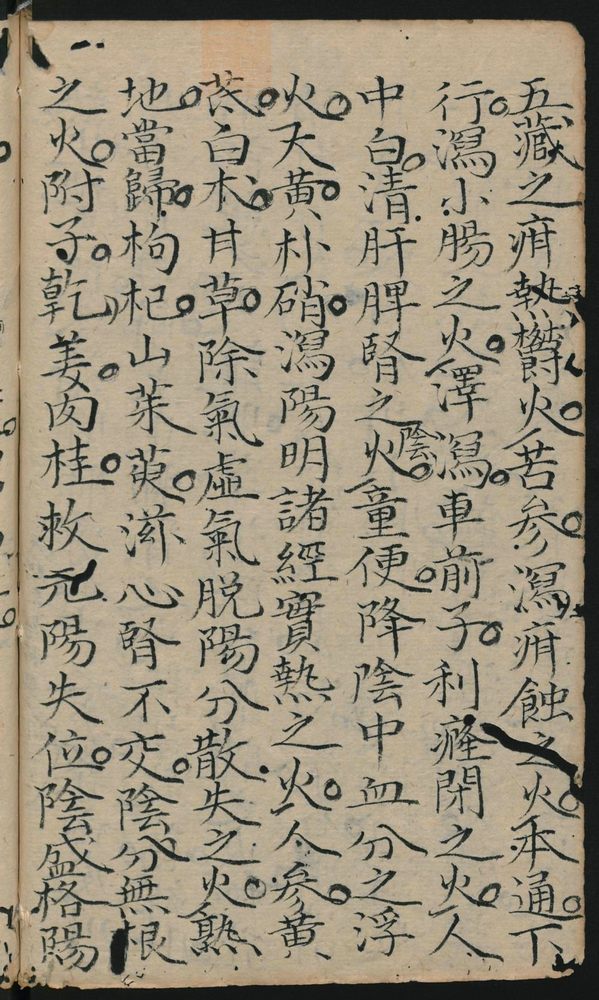 五藏之疳熱欝火。苦参瀉疳蝕之火。木通下
行瀉小腸之火。澤瀉。車前子。利癃閉之火。人
中白。清肝脾腎之陰火。童便。降陰中血分之浮
火。大黄。朴硝。瀉陽明諸經實熱之火。人参。黄
芪。白术。甘草。除氣虚氣脱陽分散失之火。熟
地。當歸。枸杞。山茱萸。滋心腎不交。陰分無根
之火。附子。乾姜。肉桂。救元陽失位。陰盛格陽